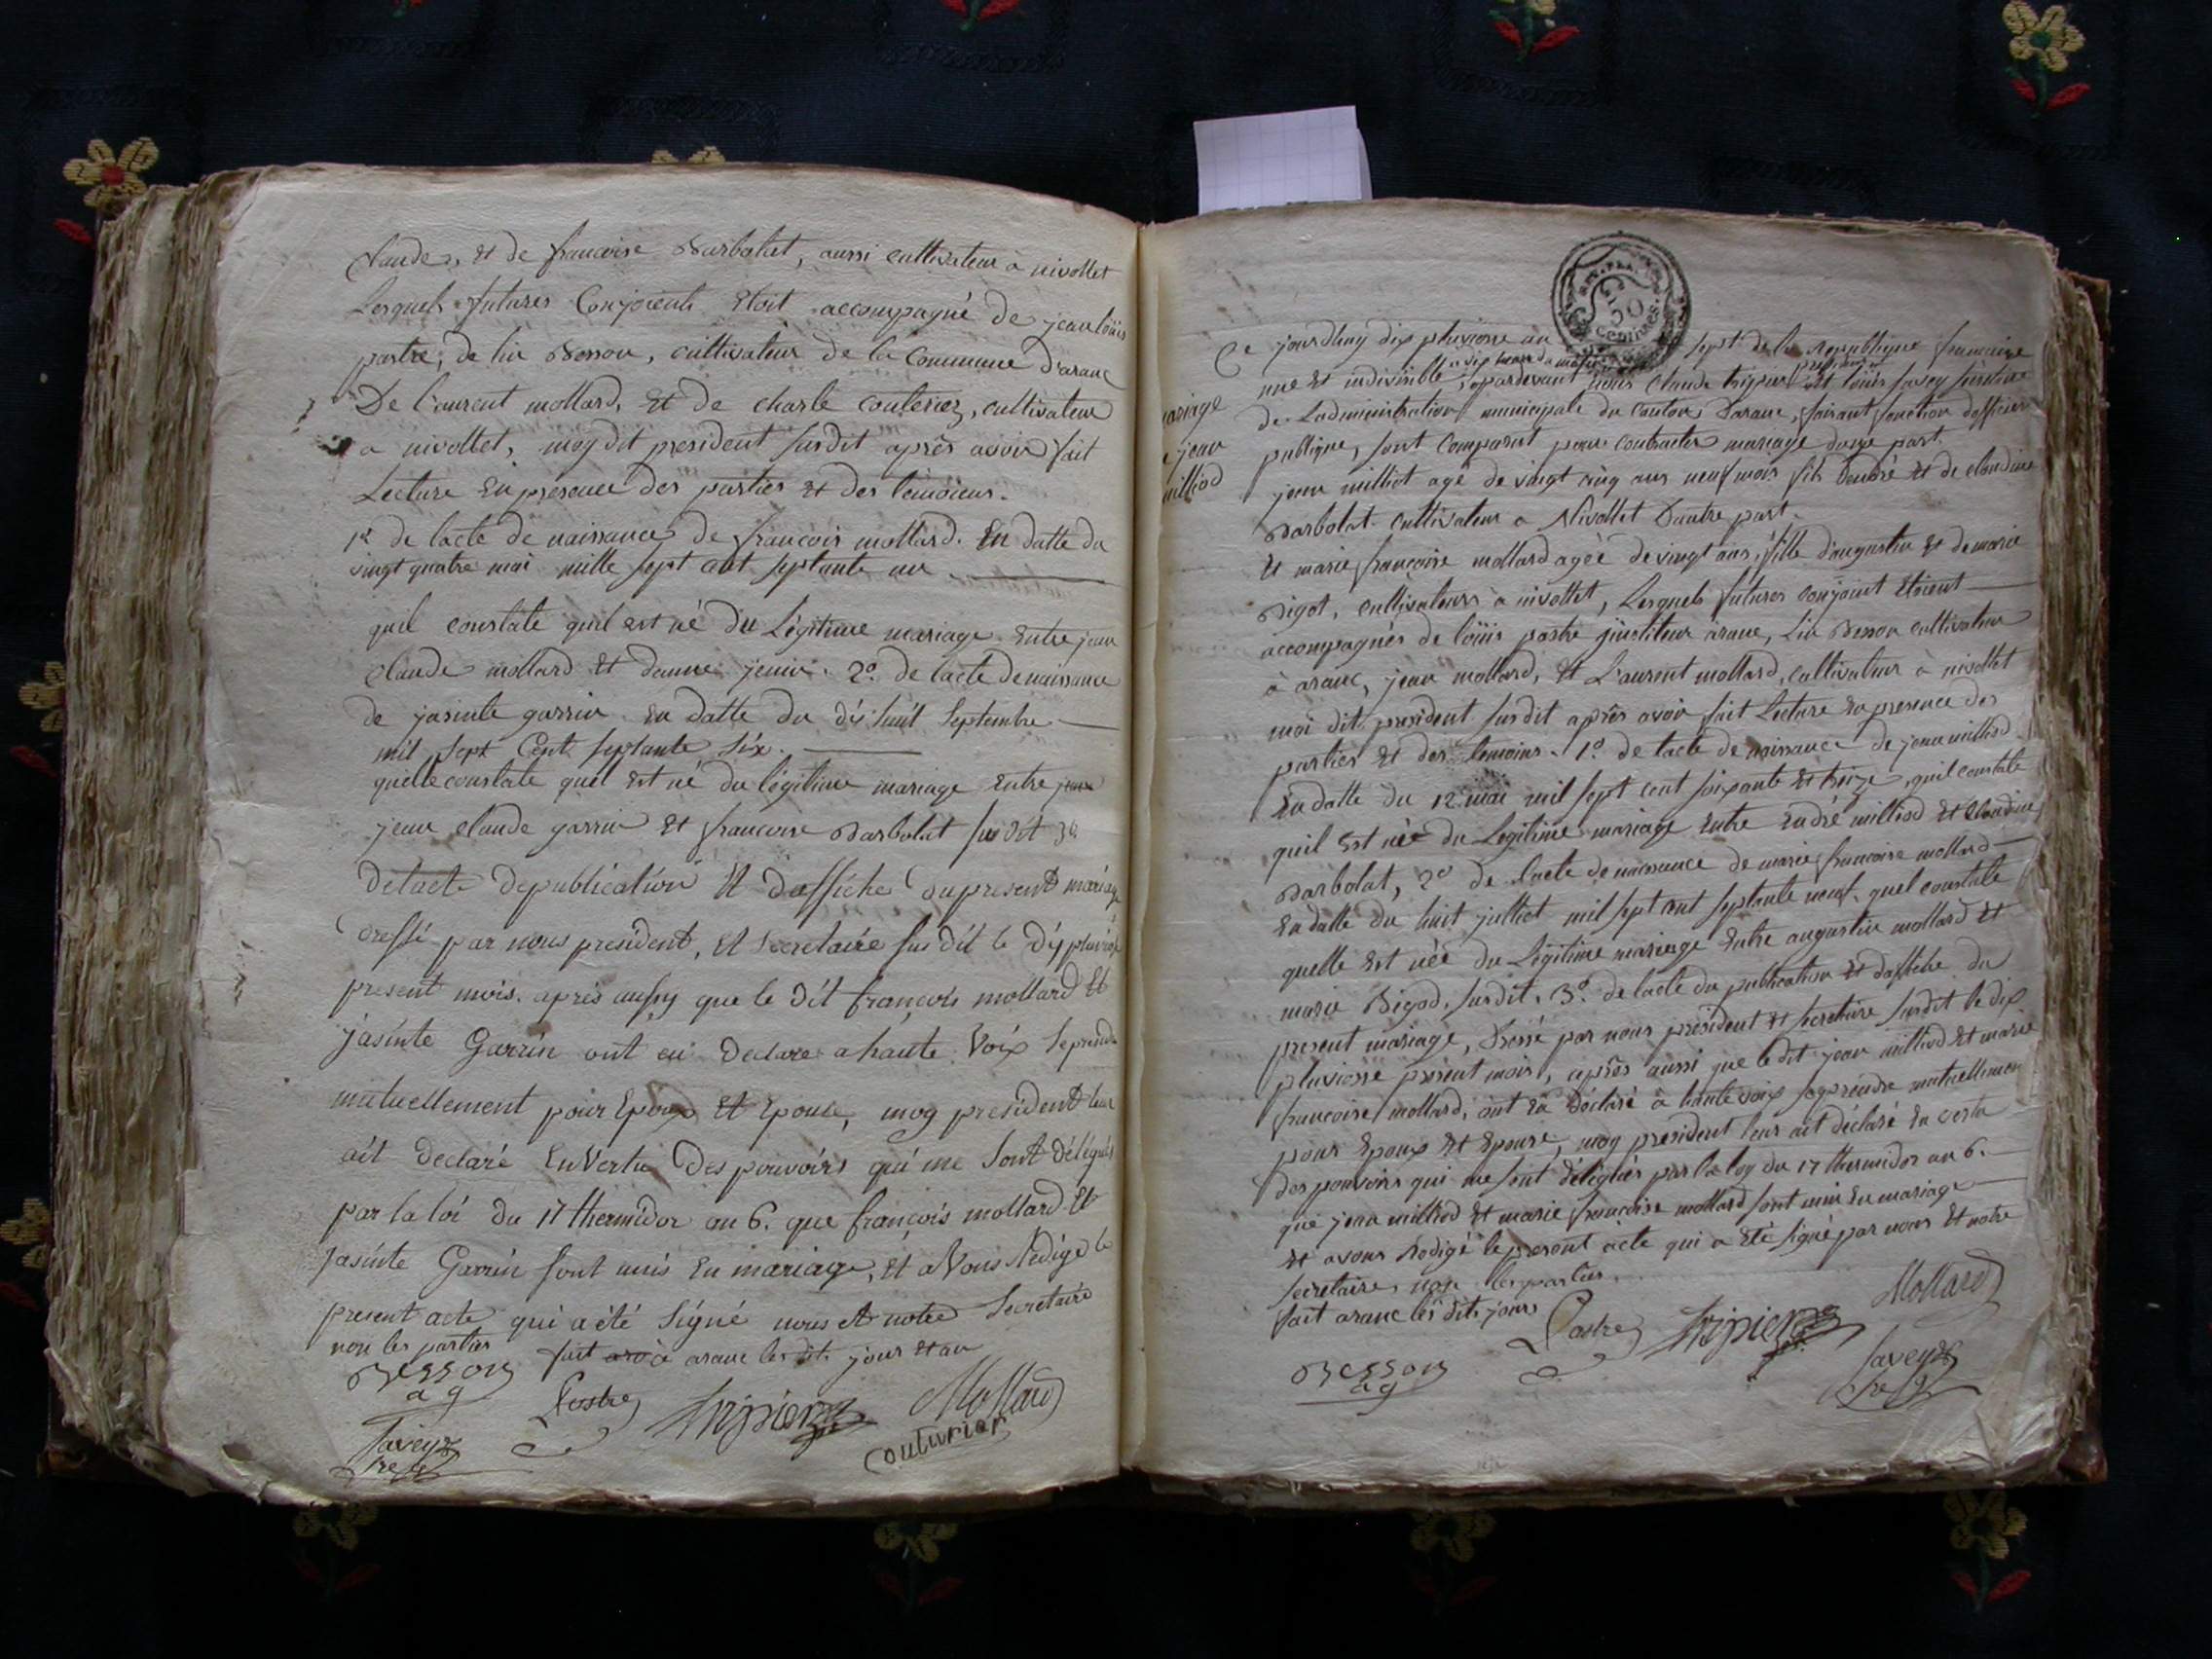 Claude, et de francoise Darbolat, aussi cultivateur a nivollet
Lesquels futures Conjoients Etoit accompagné de jean loüis
pastre, de liu Besson, cultivateur de la Commune d'aranc
De Laurent mollard, Et de charle couterier, cultivateur
a nivollet, moy dit president susdit après avoir fait
Lecture En presence des parties et des temoiens.
1º de lacte de naissance de francois mollard. En datte du
vingt quatre mai mille sept cent septante un
quil constate quil est né du Légitime mariage Entre jean
Claude mollard Et danne jenin. 2º. de lacte de naissance
de jasinte garrin En datte du dix huit Septembre
mil sept Cent septante six.
quelle constate quel est né du légitime mariage Entre jean
jean claude garrin Et francoise Darbolat susdit 3º
De lacte depublication Et Daffiche du present mariage
dressé par nous president, Et Secretaire susdit le dix pluviose
present mois. après aussy que le dit françois mollard Et
jasinte Garrin ont eü Declaré a haute Voix Seprendre
mutuellement pour Epoux Et Epouse, moy president leur
ait declaré En Vertu Des pouvoirs qui me Sont délégués
par la loi du 17 thermidor an 6. que françois mollard Et
jasinte Garrin sont unis En mariage, Et avons Redigé le
present acte qui a été Signé nous et notre Secretaire
non les parties fait aranc les dits jour et an
Besson
ag
Pastre
Tripier
Mollard
couturier
Savey
Sre
ariage
jean
milliod
50 centimes
Ce jourdhuy dix pluviosse an sept de la Republique francaise
une Et indivisible, a dix heure du matin pardevant nous Claude tripier president Et loüis savey secretaire
de Ladministration municipale du canton Daranc, faisant fonction dofficier
publique, sont comparut pour contracter mariage dunne part.
jean milliot agé de vingt cinq ans neuf mois fils dandré Et de claudine
Darbolat cultivateur a Nivollet Dautre part.
Et marie francoise mollard agée de vingt ans, fille daugustin Et de marie
Bigot, cultivateurs a nivollet, Lesquels futures conjoint Etoient
accompagnés de loüis pastre jnstituteur aranc, Liu Besson cultivateur
à aranc, jean mollard, Et Laurent mollard, cultivateur à nivollet
moi dit president susdit après avoir fait Lecture En presence des
parties Et des temoins. 1º. de lacte de naissance de jean milliod
En datte du 12 mai mil sept cent soixante Et treize, quil constate
quil Est née du Legitime mariage Entre Endré milliod Et Claudine
Darbolat, 2º de lacte de naissance de marie francoise mollard
En datte du huit julliet mil sept cent septante neuf, quel constate
quelle Est née du Légitime mariage Entre augustin mollard Et
marie Bigod, susdit, 3º. de lacte du publication Et daffiche du
present mariage, Dressé par nous president Et secretaire susdit le dix
pluviosse present mois, après aussi que le dit jean milliod Et marie
francoise mollard, ont Eü déclaré à haute voix se prendre mutuellement
pour Epoux Et Epouse, moy president leur ait déclaré En vertu
des pouvoirs qui me sont délégués par la loy du 17 thermidor an 6.
que jean milliod Et marie francoise mollard sont unis En mariage
Et avons Redigé le present acte qui a Eté signé par nous Et notre
secretaire, non les parties.
fait aranc les dits jours
Pastre
Tripier
Mollard
Besson
ag
Savey
Sre